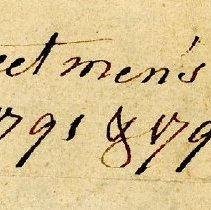 eet men's
1791 & 179